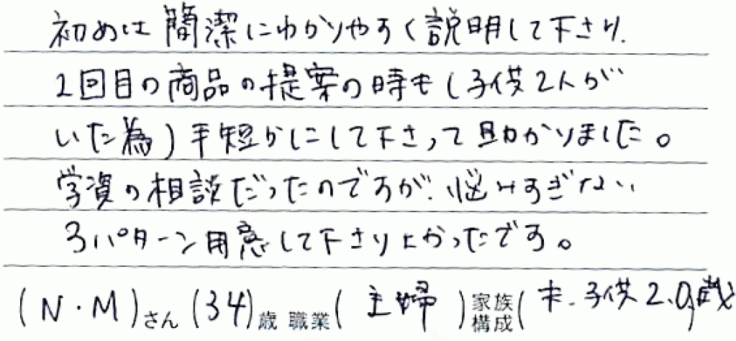 初めは簡潔にわかりやすく説明して下さり、
2回目の商品の提案の時も(子供2人が
いた為)手短かにして下さって助かりました。
学資の相談だったのですが、悩みすぎない
3パターン用意して下さりよかったです。
(N・M)さん(34)歳 職業(主婦)家族構成(夫.子供2.0歳)